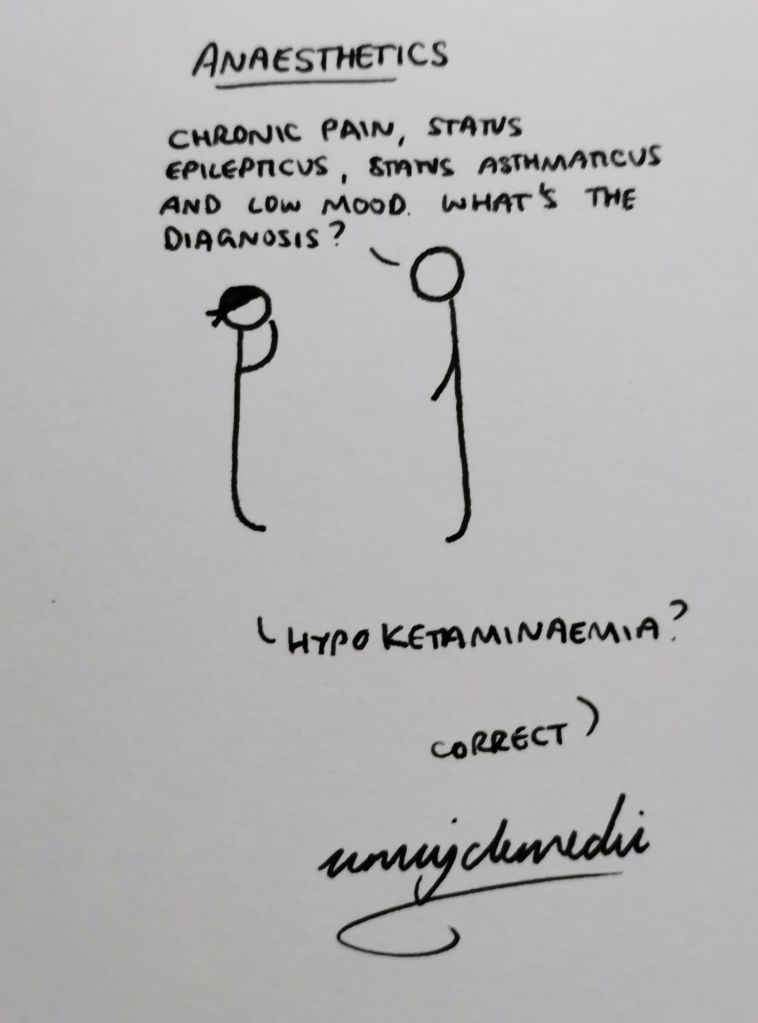 ANAESTHETICS
CHRONIC PAIN, STATUS
EPILEPTICUS, STATUS ASTHMATICUS
AND LOW MOOD. WHAT'S THE
DIAGNOSIS?
HYPOKETAMINAEMIA?
CORRECT